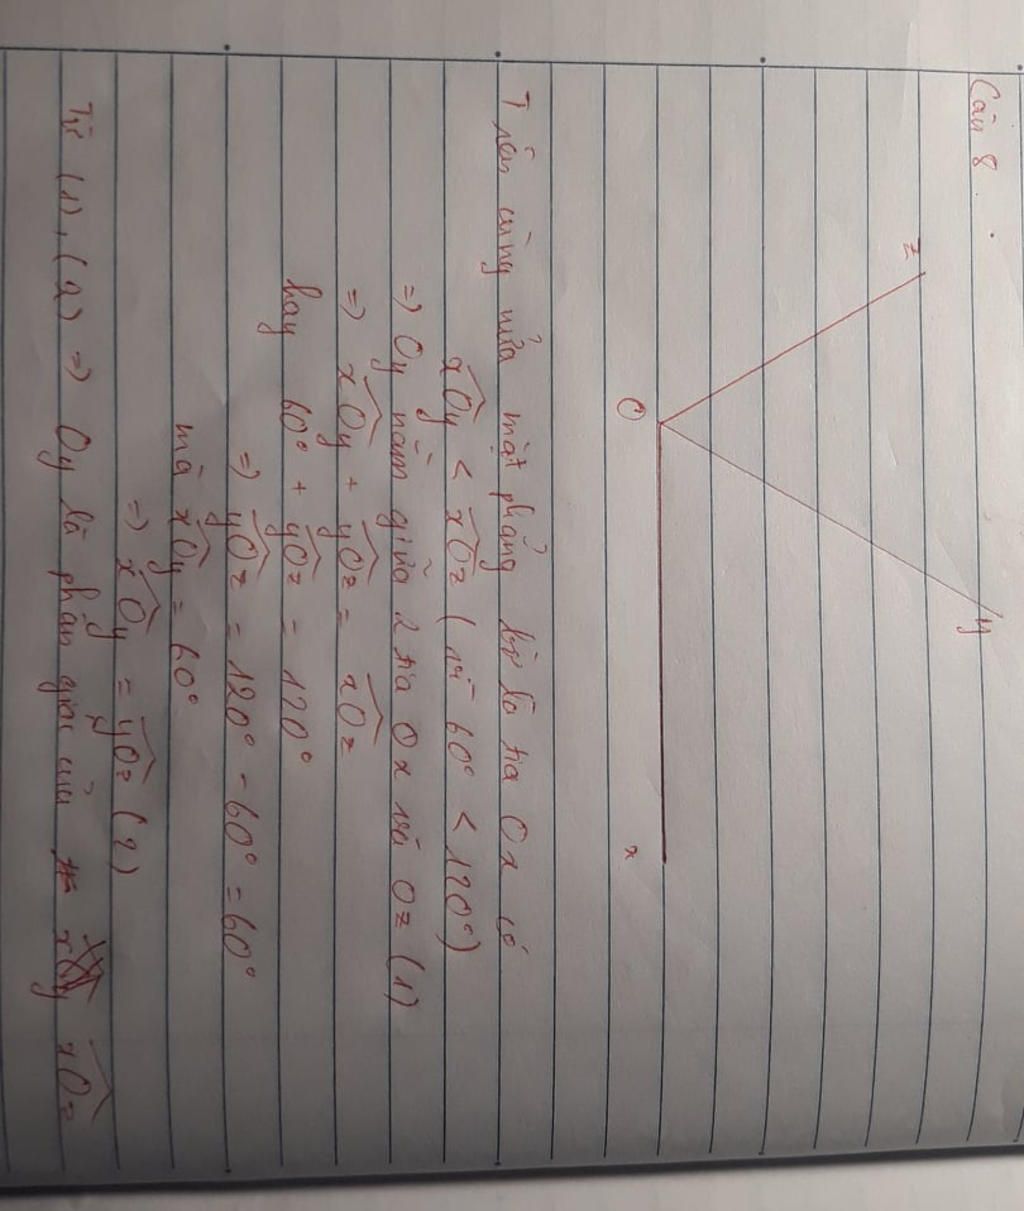 Câu 8
z
y
O
x
Trên cùng nửa mặt phẳng bờ là tia Ox có
xOy < xOz (vì 60° < 120°)
=> Oy nằm giữa 2 tia Ox và Oz (1)
=> xOy + yOz = xOz
hay 60° + yOz = 120°
=> yOz = 120° - 60° = 60°
mà xOy = 60°
=> xOy = yOz (2)
Từ (1), (2) => Oy là phân giác của xOz